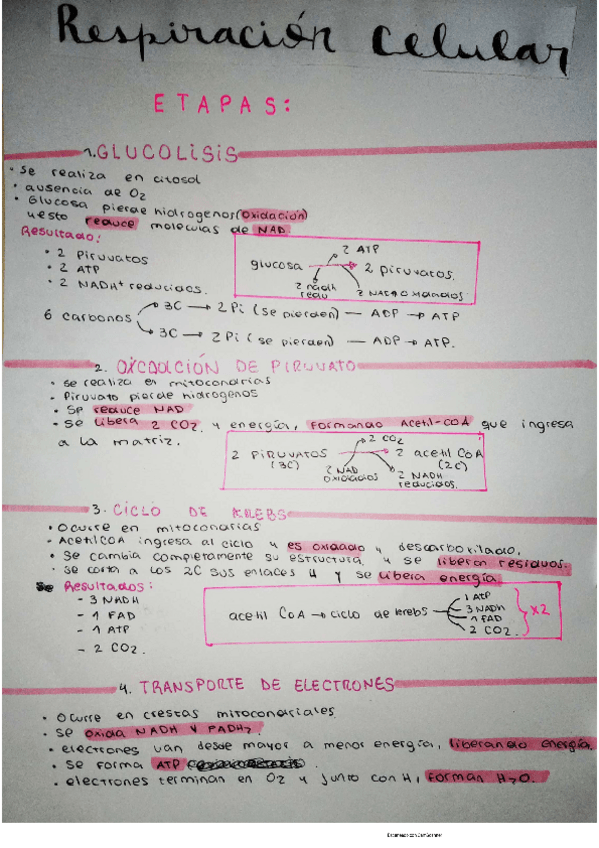 Respiración Celular
ETAPAS:
1. GLUCOLISIS
• Se realiza en citosol
• ausencia de O2
• Glucosa pierde hidrogenos (oxidación)
y esto reduce moleculas de NAD
Resultado:
• 2 Piruvatos
• 2 ATP
• 2 NADH+ reducidos.
2 ATP
glucosa → 2 piruvatos.
2 nadh
redu
2 NAD+ oxidados
6 carbonos
3C → 2 Pi (se pierden) — ADP → ATP
3C → 2 Pi (se pierden) — ADP → ATP.
2. OXIDACIÓN DE PIRUVATO
• se realiza en mitocondrias
• Piruvato pierde hidrogenos
• Se reduce NAD
• Se libera 2 CO2 y energía, formando Acetil-COA que ingresa
a la matriz.
2 CO2
2 PIRUVATOS → 2 acetil CoA
(3C) (2C)
2 NAD
oxidados
2 NADH
reducidos.
3. CICLO DE KREBS
• Ocurre en mitoconarias
• AcetilCOA ingresa al ciclo y es oxidado y descarboxilado.
• Se cambia completamente su estructura y se liberan residuos.
• Se corta a los 2C sus enlaces H y se libera energía
Se Resultados:
- 3 NADH
- 1 FAD
- 1 ATP
- 2 CO2.
acetil CoA → ciclo de krebs
1 ATP
3 NADH
1 FAD
2 CO2.
x2
4. TRANSPORTE DE ELECTRONES
• Ocurre en crestas mitocondriales
• Se oxida NADH y FADH2.
• electrones van desde mayor a menor energía, liberando energía.
• Se forma ATP
• electrones terminan en O2 y junto con H, forman H2O.
Escaneado con CamScanner